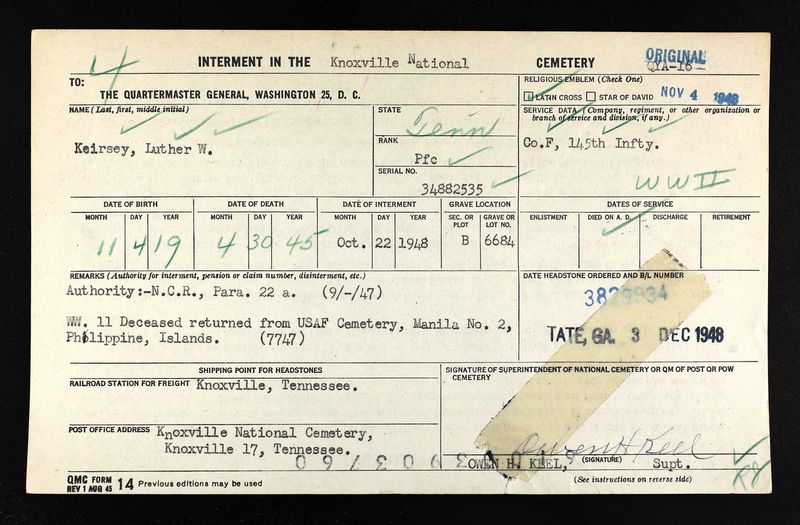 4
INTERMENT IN THE Knoxville National CEMETERY
ORIGINAL
QYA-16
TO:
THE QUARTERMASTER GENERAL, WASHINGTON 25, D. C.
RELIGIOUS EMBLEM (Check One)
LATIN CROSS STAR OF DAVID NOV 4 1948
NAME (Last, first, middle initial)
Keirsey, Luther W.
STATE
Tenn
RANK
Pfc
SERIAL NO.
34882535
SERVICE DATA (Company, regiment, or other organization or
branch of service and division, if any.)
Co.F, 145th Infty.
WW II
DATE OF BIRTH DATE OF DEATH DATE OF INTERMENT GRAVE LOCATION
MONTH DAY YEAR MONTH DAY YEAR MONTH DAY YEAR SEC. OR PLOT GRAVE OR LOT NO.
11 4 19 4 30 45 Oct. 22 1948 B 6684
DATES OF SERVICE
ENLISTMENT DIED ON A. D. DISCHARGE RETIREMENT
REMARKS (Authority for interment, pension or claim number, disinterment, etc.)
Authority:-N.C.R., Para. 22 a. (9/-/47)
WW. 11 Deceased returned from USAF Cemetery, Manila No. 2,
Philippine, Islands. (7747)
DATE HEADSTONE ORDERED AND B/L NUMBER
3829934
TATE, GA. 3 DEC 1948
SHIPPING POINT FOR HEADSTONES
RAILROAD STATION FOR FREIGHT Knoxville, Tennessee.
POST OFFICE ADDRESS Knoxville National Cemetery,
Knoxville 17, Tennessee.
SIGNATURE OF SUPERINTENDENT OF NATIONAL CEMETERY OR QM OF POST OR POW
CEMETERY
Owen H Keel
OWEN H. KEEL, (SIGNATURE) Supt.
QMC FORM
REV 1 AUG 45 14 Previous editions may be used
(See instructions on reverse side)